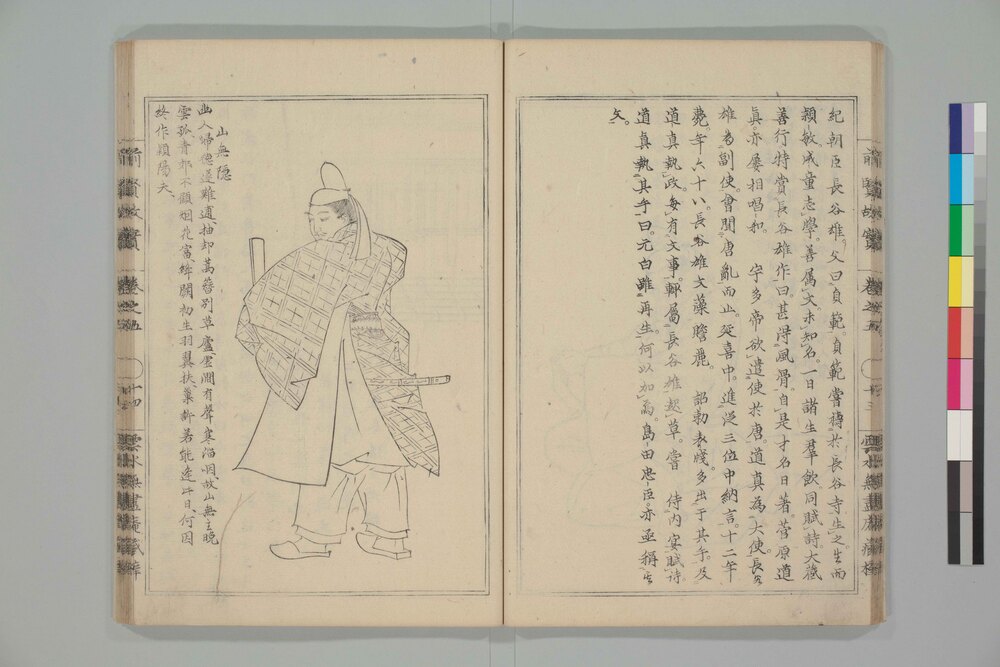 紀朝臣長谷雄。父曰貞範。貞範嘗禱於長谷寺生之。生而
穎敏。成童志學。善屬文。未知名。一日諸生羣飲同賦詩。大藏
善行特賞長谷雄作曰。甚得風骨。自是才名日著。菅原道
眞。亦屢相唱和。宇多帝欲遣使於唐。道眞為大使。長谷
雄為副使。會聞唐亂而止。延喜中。進從三位中納言。十二年
薨。年六十八。長谷雄文藻贍麗。詔勅表牋。多出于其手。及
道真執政。每有文事。輒屬長谷雄起草。嘗侍内宴賦詩
道真執其手曰。元白雖再生。何以加焉。島田忠臣。亦亟稱其
文。
前賢故實 卷之五
山無隱
幽人歸德遂難逋。抽却萬簪別草廬。虛澗有聲寒溜咽。故山無主晚
雲孤。青郊不顧烟花富。絳闕初生羽翼扶。巢許若能逢此日。何因
終作潁陽夫。
前賢故實 卷之五 十四 雲水無盡庵藏